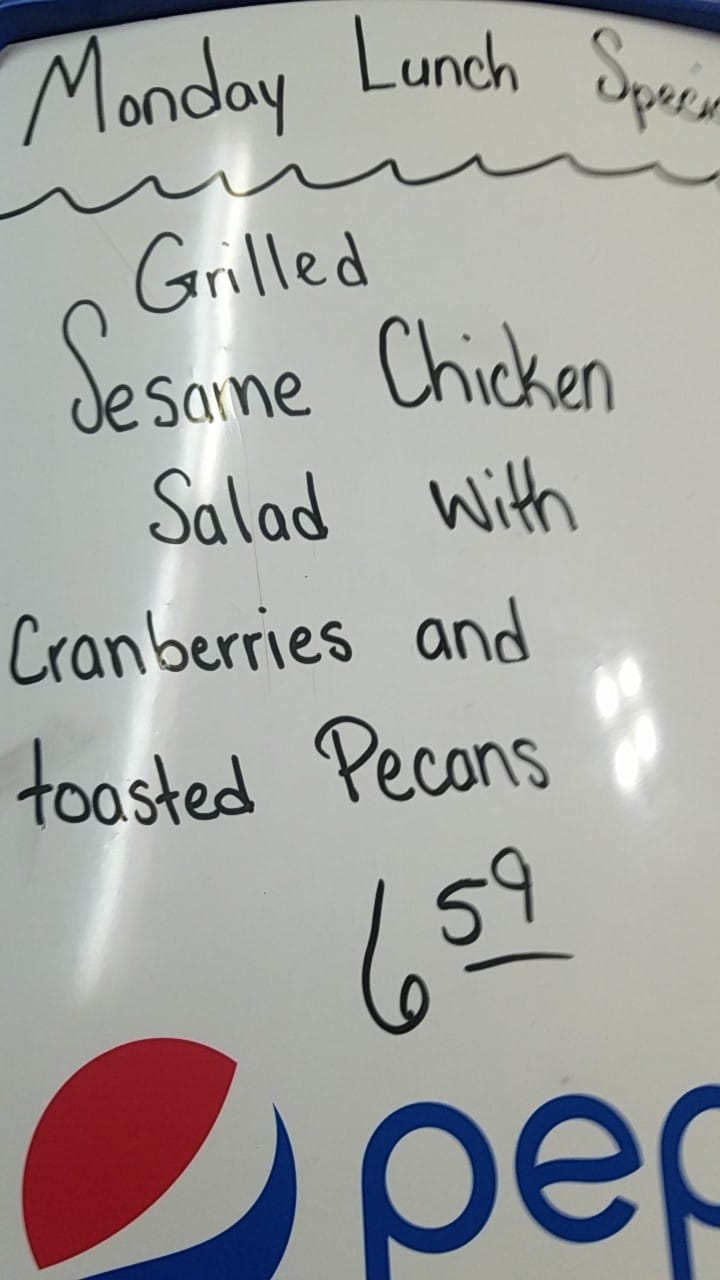 Monday Lunch Spec
Grilled
Sesame Chicken
Salad With
Cranberries and
toasted Pecans
6 59
pep